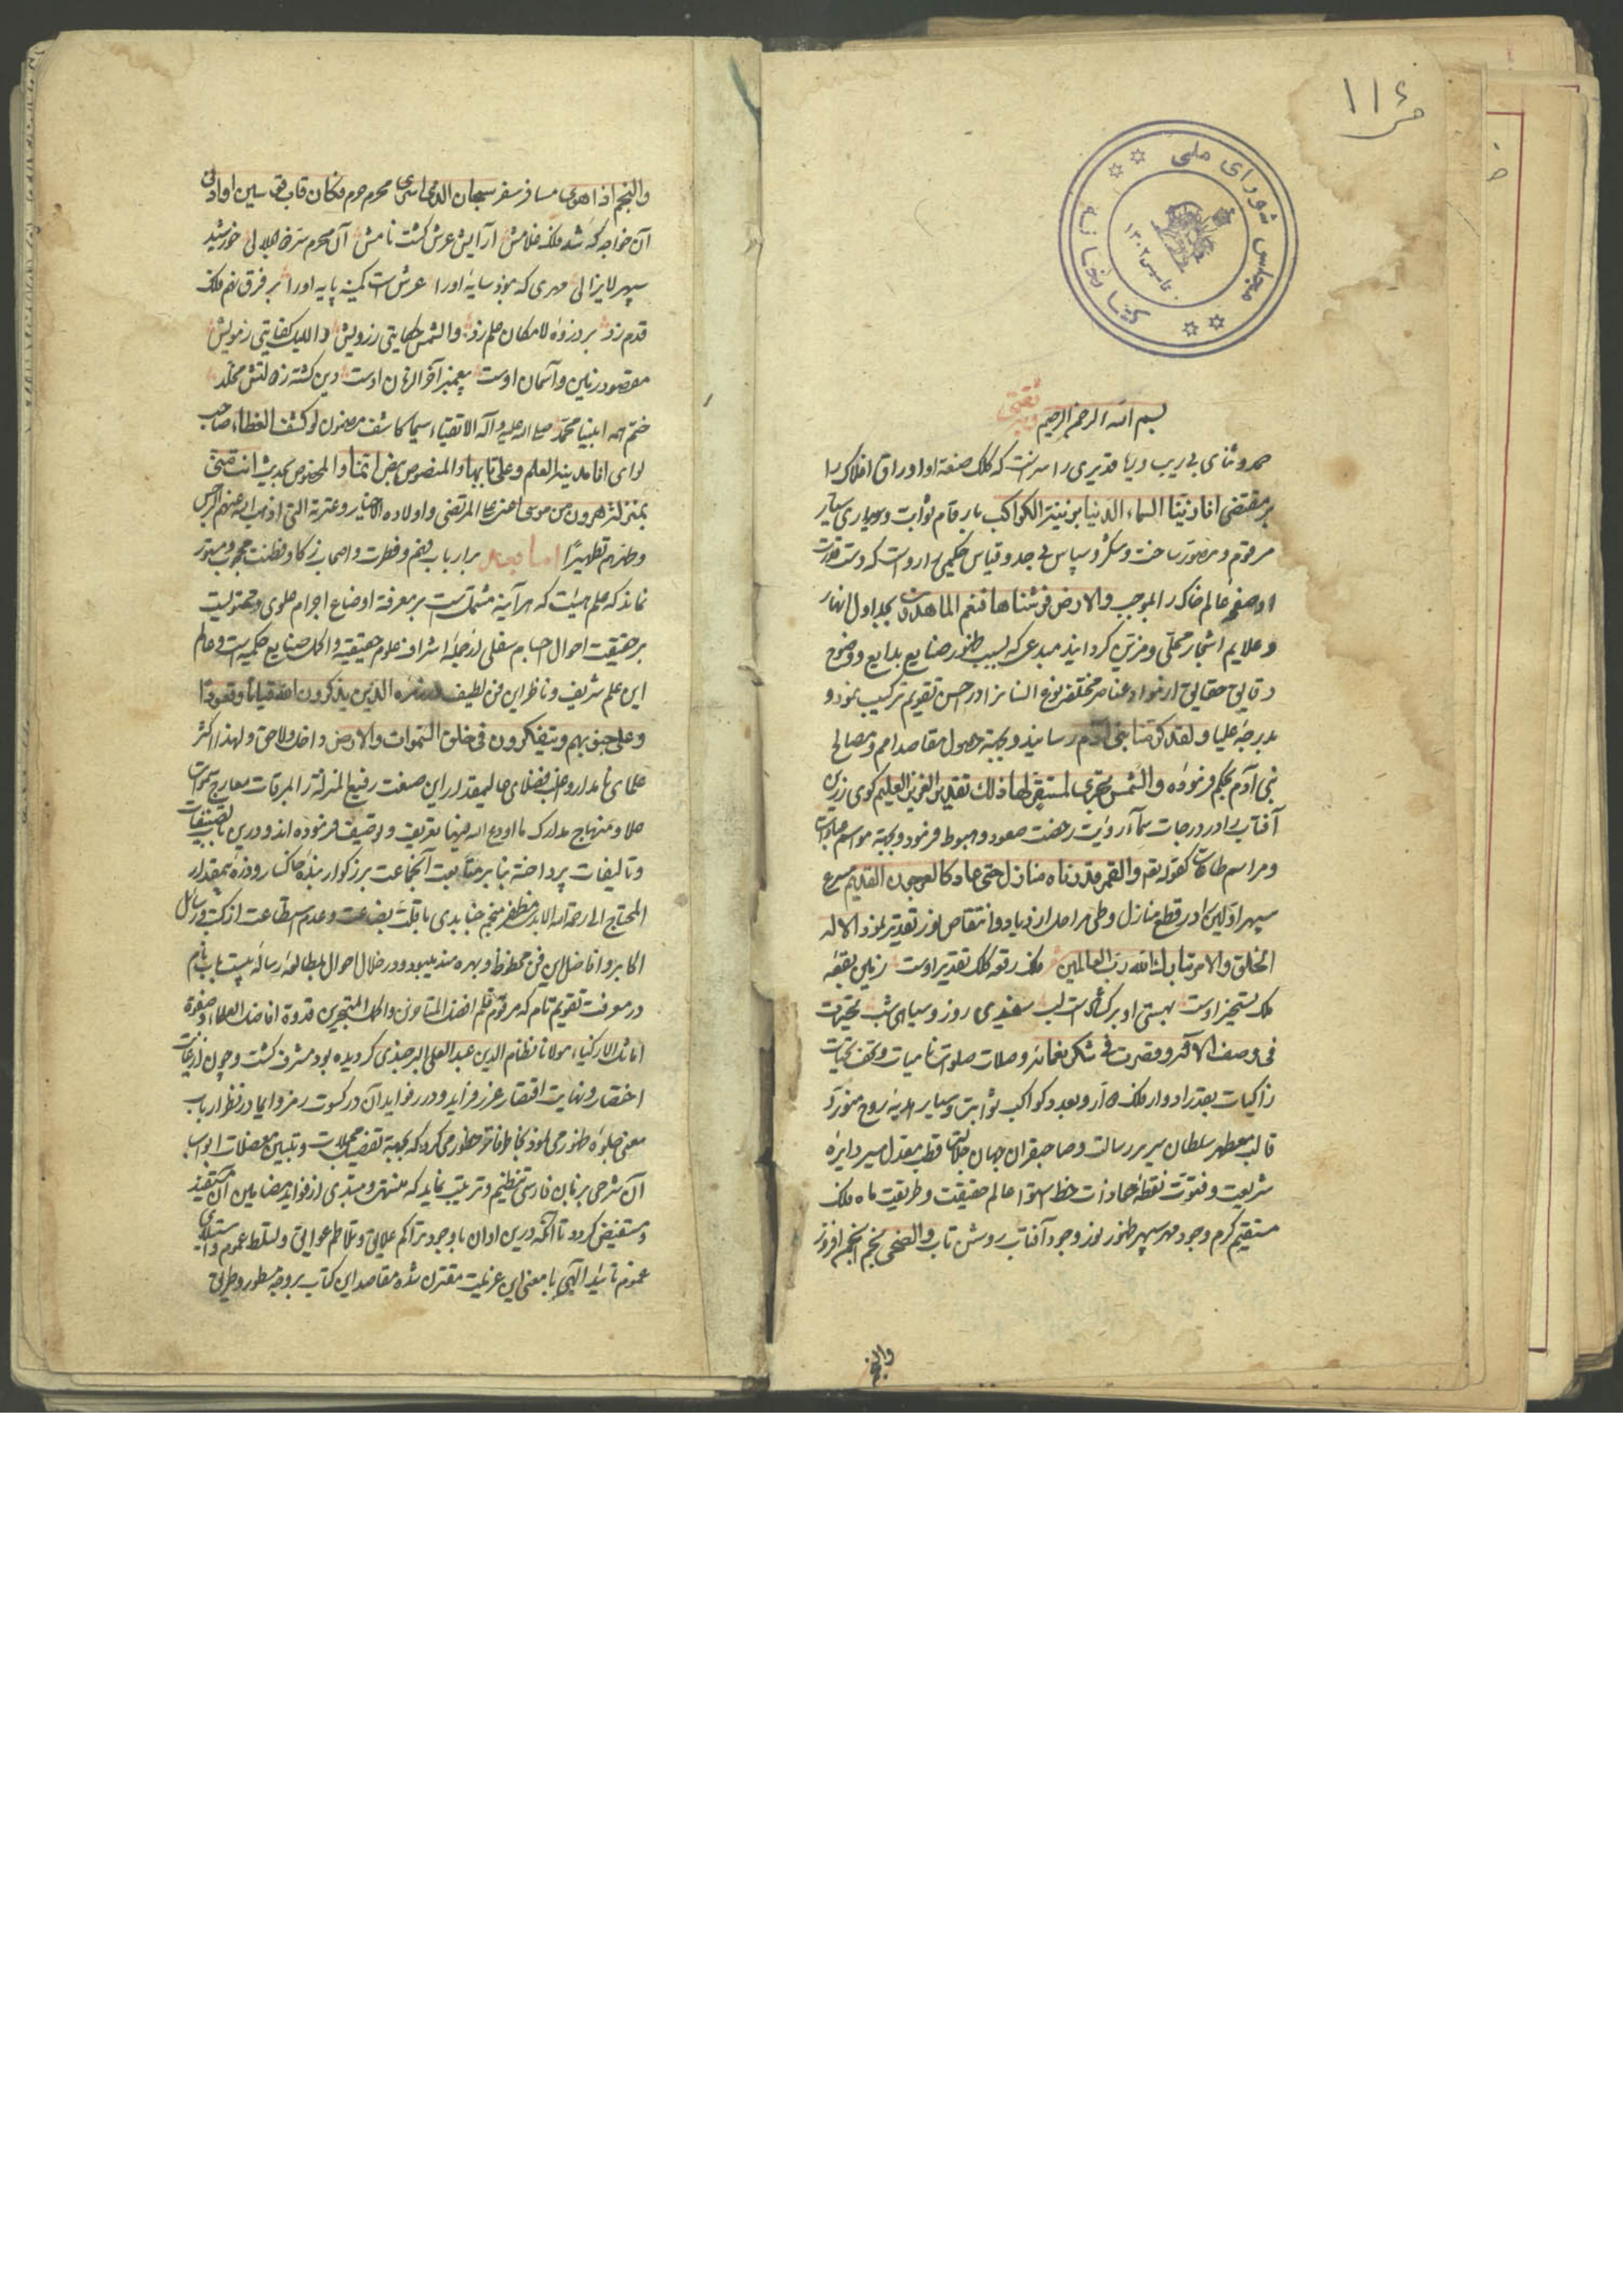 ۱۱۶
مجلس شورای ملی
کتابخانه
تاسیس ۱۳۰۲
بسم الله الرحمن الرحیم
حمد و ثنای بی ریب و ریا قدیری را سزاست که کلک صنعت او اوراق افلاک را
بر مقتضی انا زینا السماء الدنیا بزینة الکواکب بارقام ثوابت و سیار
مرقوم و مصور ساخت و شکر و سپاس بی حد و قیاس حکیمی را رواست که دست قدرت
او صفحه عالم خاک را بموجب والارض فرشناها فنعم الماهدون بجداول انهار
و علایم اشجار محلی و مزین گردانید مبدعی که بسبب ظهور صنایع بدایع و وضوح
دقایق حقایق از مواد عناصر مختلفه نوع انسان را در احسن تقویم ترکیب نمود و
بدرجه علیا و لقد کرمنا بنی آدم رسانید و بجهة حصول مقاصد امم و مصالح
بنی آدم بحکم فرموده والشمس تجری لمستقر لها ذلک تقدیر العزیز العلیم کوی زرین
آفتاب را در درجات سما رخصت صعود و هبوط فرمود و بجهة مواسم عبادات
و مراسم طاعات کقوله تعه والقمر قدرناه منازل حتی عاد کالعرجون القدیم مسرع
سپهر اولین را در قطع منازل و طی مراحل ازدیاد و انتقاص نور تقدیر نمود الا له
الخلق والامر تبارک الله رب العالمین فلک رقعه کلک تقدیر اوست زمین بقعه
ملک تسخیر اوست بهستی او بر گشادست لب سفیدی روز و سیاهی شب تحیرت
فی وصف آلائه و قصرت فی شکر نعمائه و صلات صلوات نامیات و تحف تحیات
زاکیات بعدد ادوار فلک دوار و بعدد کواکب ثوابت و سیار هدیه روح منور و
قالب معطر سلطان سریر رسالت و صاحبقران جهان جلالت قطب معدل مسیر دایره
شریعت و فتوت نقطه محاذات خط استوا عالم حقیقت و طریقت ماه فلک
مستقیم کرم وجود مهر سپهر ظهور نور وجود آفتاب روشن تاب والضحی نجم انجم افروز
والنجم
والنجم اذا هوی مسافر سفر سبحان الذی اسری محرم حرم فکان قاب قوسین او ادنی
آن خواجه که شد فلک غلامش آرایش عرش گشت نامش آن محرم سر لی خورشید
سپهر لایزالی مهری که نبود سایه او را عرش است کمینه پایه او را بر فرق نهم فلک
قدم زد بر ذروه لامکان علم زد والشمس حکایتی ز رویش واللیل کنایتی ز مویش
مقصود زمین و آسمان اوست پیغمبر آخر الزمان اوست دین گشته ز دولتش مخلد
ختم همه انبیا محمد صلی الله علیه و آله الاتقیاء سیما کاشف مضمون لو کشف الغطاء صاحب
لوای انا مدینة العلم و علی بابها والمنصوص بنص انما والمخصوص بحدیث انت منی
بمنزلة هرون من موسی اعنی علی المرتضی و اولاده الاخیار و عترته التی اذهب الله عنهم الرجس
و طهرهم تطهیرا اما بعد بر ارباب فهم و فطرت و اصحاب ذکا و فطنت محجوب و مستور
نماند که علم هیئت که هرآینه مشتمل است بر معرفت اوضاع اجرام علوی و محتویست
بر حقیقت احوال اجسام سفلی از جمله اشراف علوم حقیقیه و اکمل صنایع حکمیه است و عالم
این علم شریف و ناظر این فن لطیف در الذین یذکرون الله قیاما و قعودا
و علی جنوبهم و یتفکرون فی خلق السموات والارض داخل و لاحق و لهذا اکثر
علمای نامدار و اغلب فضلای عالیمقدار این صنعت رفیع المنزلة را المرقات معارج سموات
علا و منهاج مدارک ما اودع الله فیها تعریف و توصیف فرموده اند و درین باب بتصنیفات
و تالیفات پرداخته بنا بر متابعت آنجماعت بزرکوار بنده خاکسار و ذره بیمقدار
المحتاج الی رحمة الله الابد مظفر منجم جنابدی با قلت بضاعت و عدم استطاعت از کتب و رسائل
اکابر و افاضل این فن محظوظ و بهره مند میبود و در خلال احوال بمطالعه رساله بیست باب نام
در معرفت تقویم تام که مرقوم قلم افضل المتاخرین و اکمل المتبحرین قدوة افاضل العلماء و صفوة
اماثل الازکیاء مولانا نظام الدین عبد العلی البرجندی کردیده بود مشرف گشت و چون از غایت
اختصار و نهایت اقتصار غرر فراید و درر فواید آن در کسوت رمز و ایما در نظر ارباب
معنی جلوه ظهور می نمود بخاطر فاتر خطور می کرد که بجهة تفصیل مجملات و تبیین معضلات ابواب
آن شرحی بزبان فارسی تنظیم و ترتیب نماید که منتهی و مبتدی از فواید مضامین آن مستفید
و مستفیض کردد تا آنکه درین اوان با وجود تراکم علایق و تلاطم عوایق و تسلط هموم و استیلای
غموم تائید الهی با معنی این عزیمت مقترن شده مقاصد این کتاب بر وجه مسطور و طریق